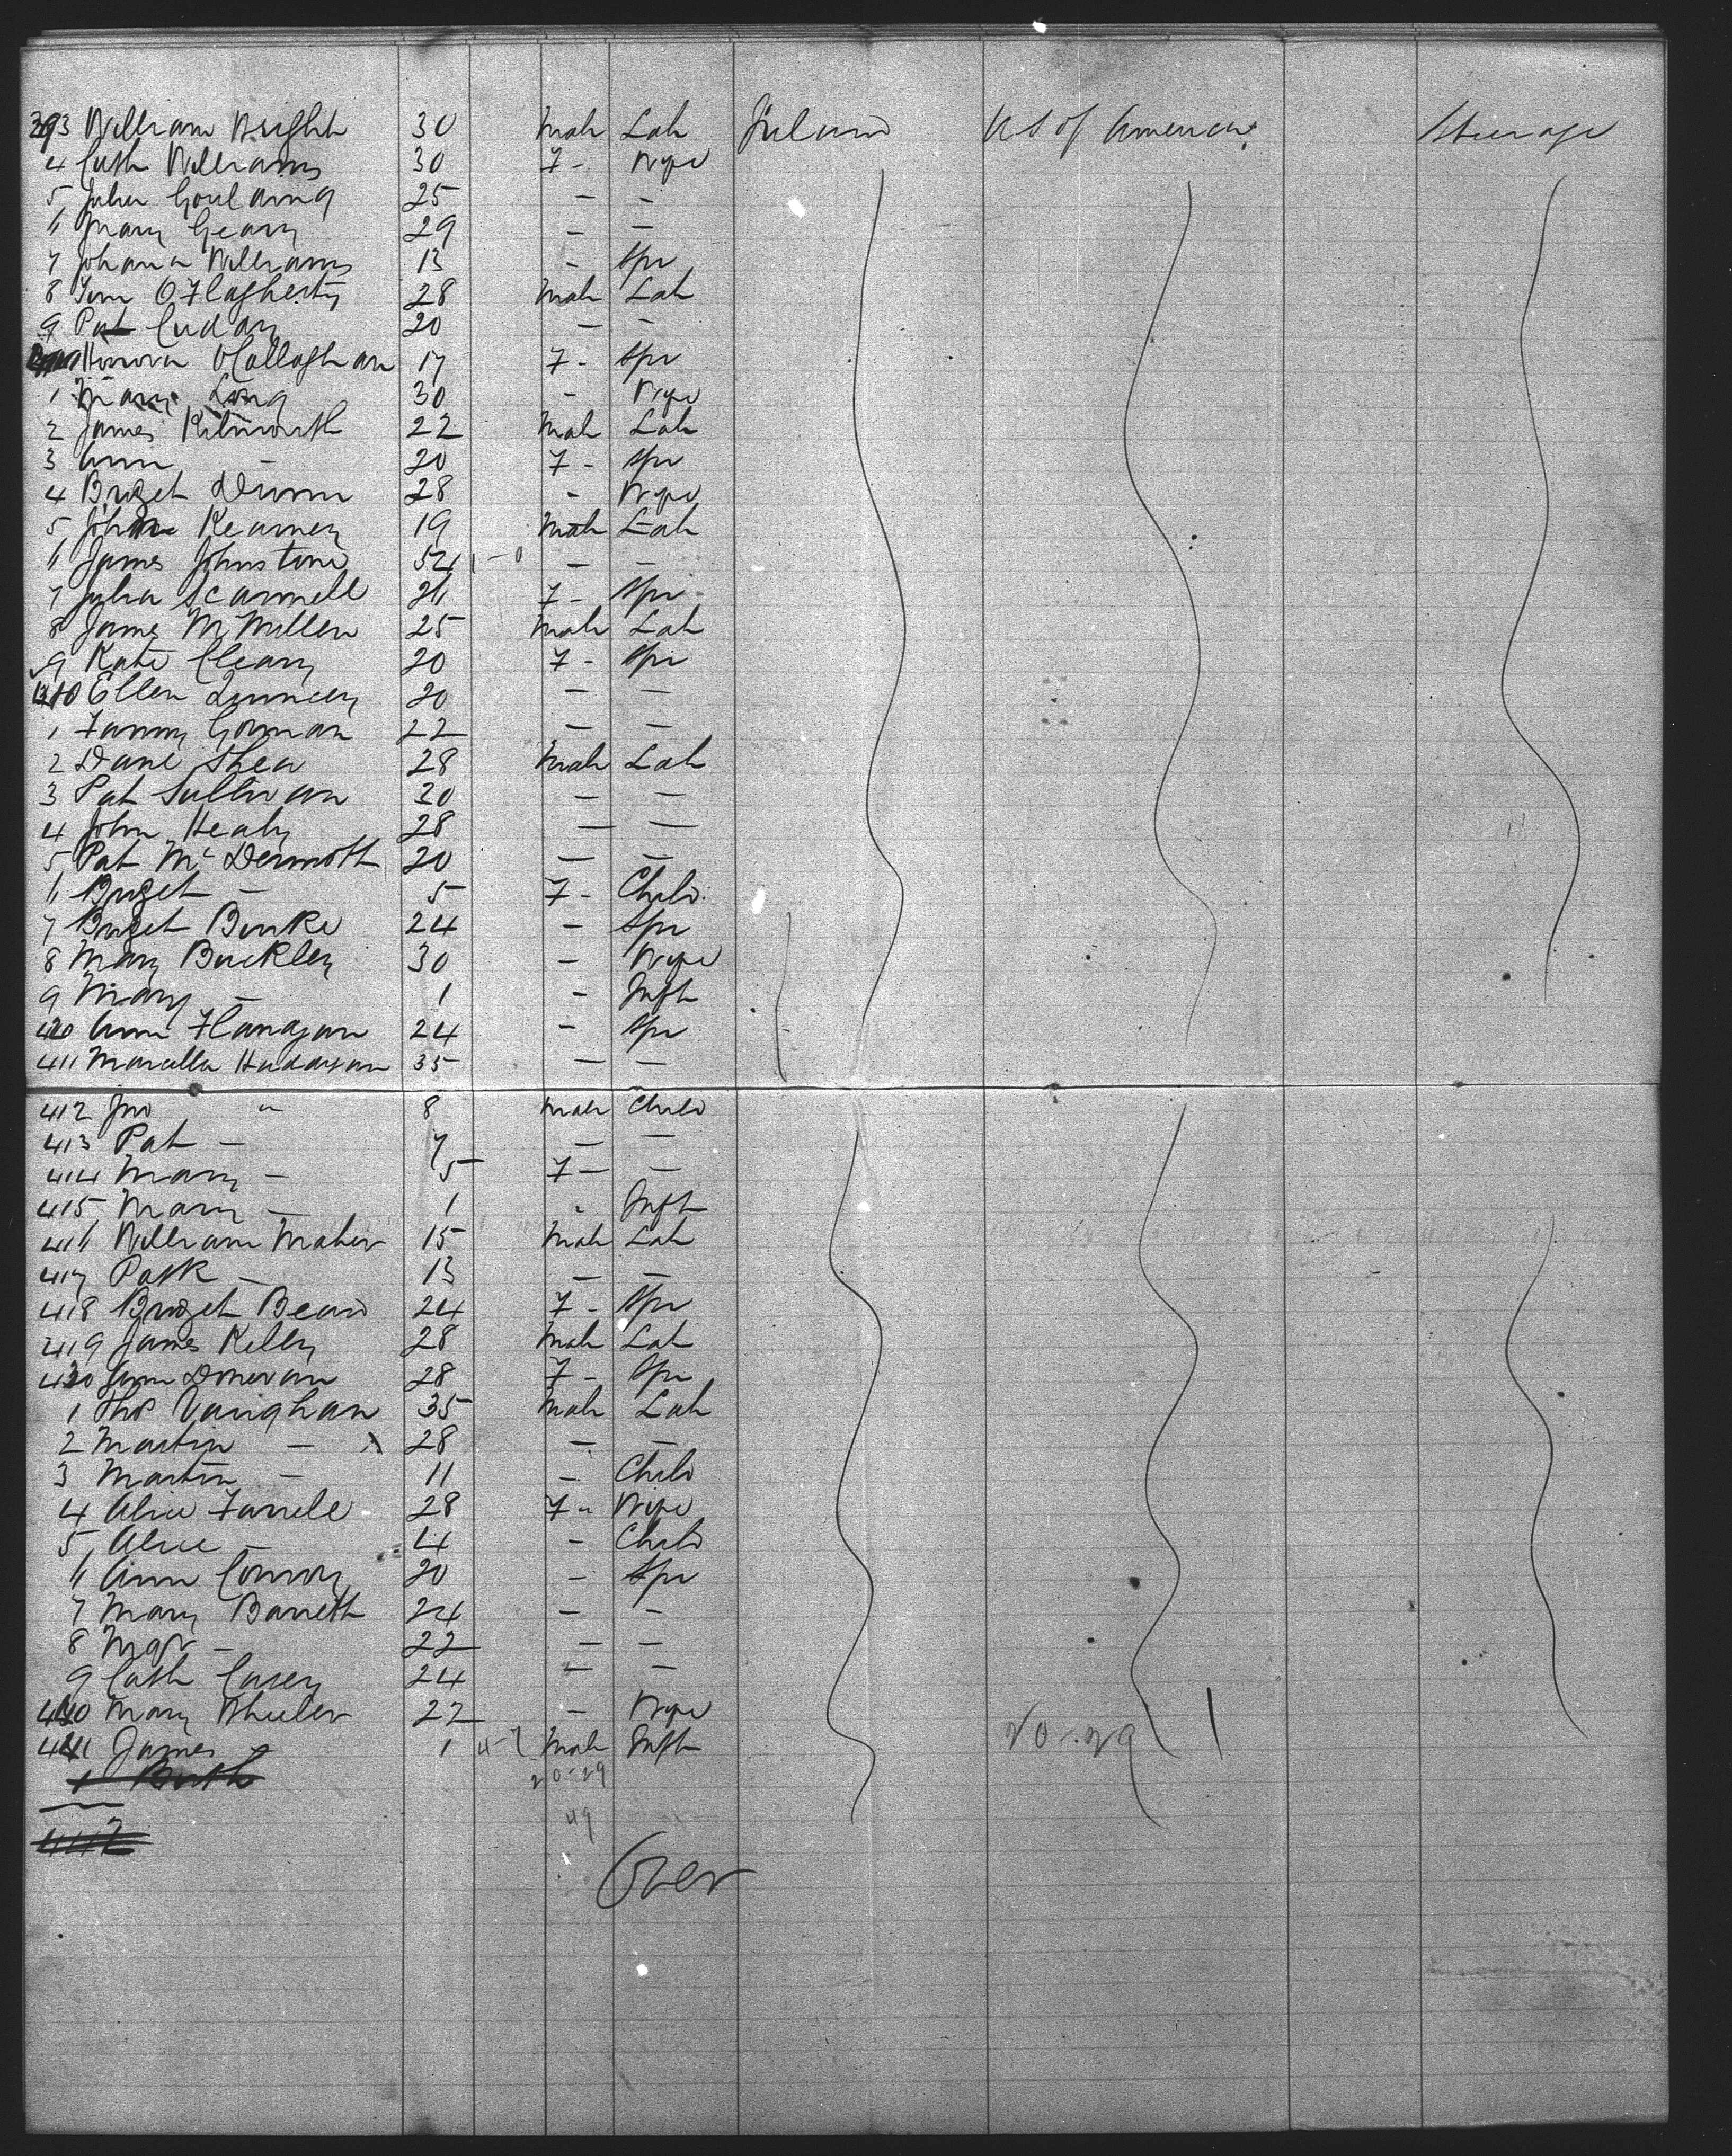 393 William Bright 30 Male Lab Ireland US of America Steerage
4 Cath Williams 30 F - Wife
5 Julia Goulding 25 - -
6 Mary Geary 29 - -
7 Johana Williams 13 - Spr
8 Tim O'Flagherty 28 Male Lab
9 Pat Cuddy 20 - -
Honora OCallaghan 17 F - Spr
1 Mary Long 30 - Wife
2 James Kilmouth 22 Male Lab
3 Ann - 20 F - Spr
4 Bridget Dunn 28 - Wife
5 John Kearney 19 Male Lab
6 James Johnstone 54 - -
7 Julia Scannell 26 F - Spr
8 James McMullen 25 Male Lab
9 Kate Cleary 20 F - Spr
Ellen 20 - -
1 Fanny Gorman 22 - -
2 Danl Shea 28 Male Lab
3 Pat Sullivan 30 - -
4 John Healy 28 - -
5 Pat McDermott 20 - -
6 Bridget - 5 F - Child
7 Bridget Burke 24 - Spr
8 Mary Buckley 30 - Wife
9 Mary - 1 - Inft
Ann Flanagan 24 - Spr
411 35 - -
412 Jno " 8 Male Child
413 Pat - 7 - -
414 Mary - 5 F - -
415 Mary - 1 - Inft
416 William Maher 15 Male Lab
417 Patk - 13 - -
418 Bridget 24 F - Spr
419 James Kelly 28 Male Lab
430 Donovan 28 F - Spr
1 Thos Vaughan 35 Male Lab
2 Martin - 28 - -
3 Martin - 11 - Child
4 Alice Farrell 28 F - Wife
5 Alice - 4 - Child
6 Ann Conroy 20 - Spr
7 Mary Barrett 24 - -
8 Mgt - 22 - -
9 Cath Casey 24 - -
440 Mary Wheeler 22 - Wife
441 James - 1 Male Inft 20-29
1 Birth 20-29
49
442
Over